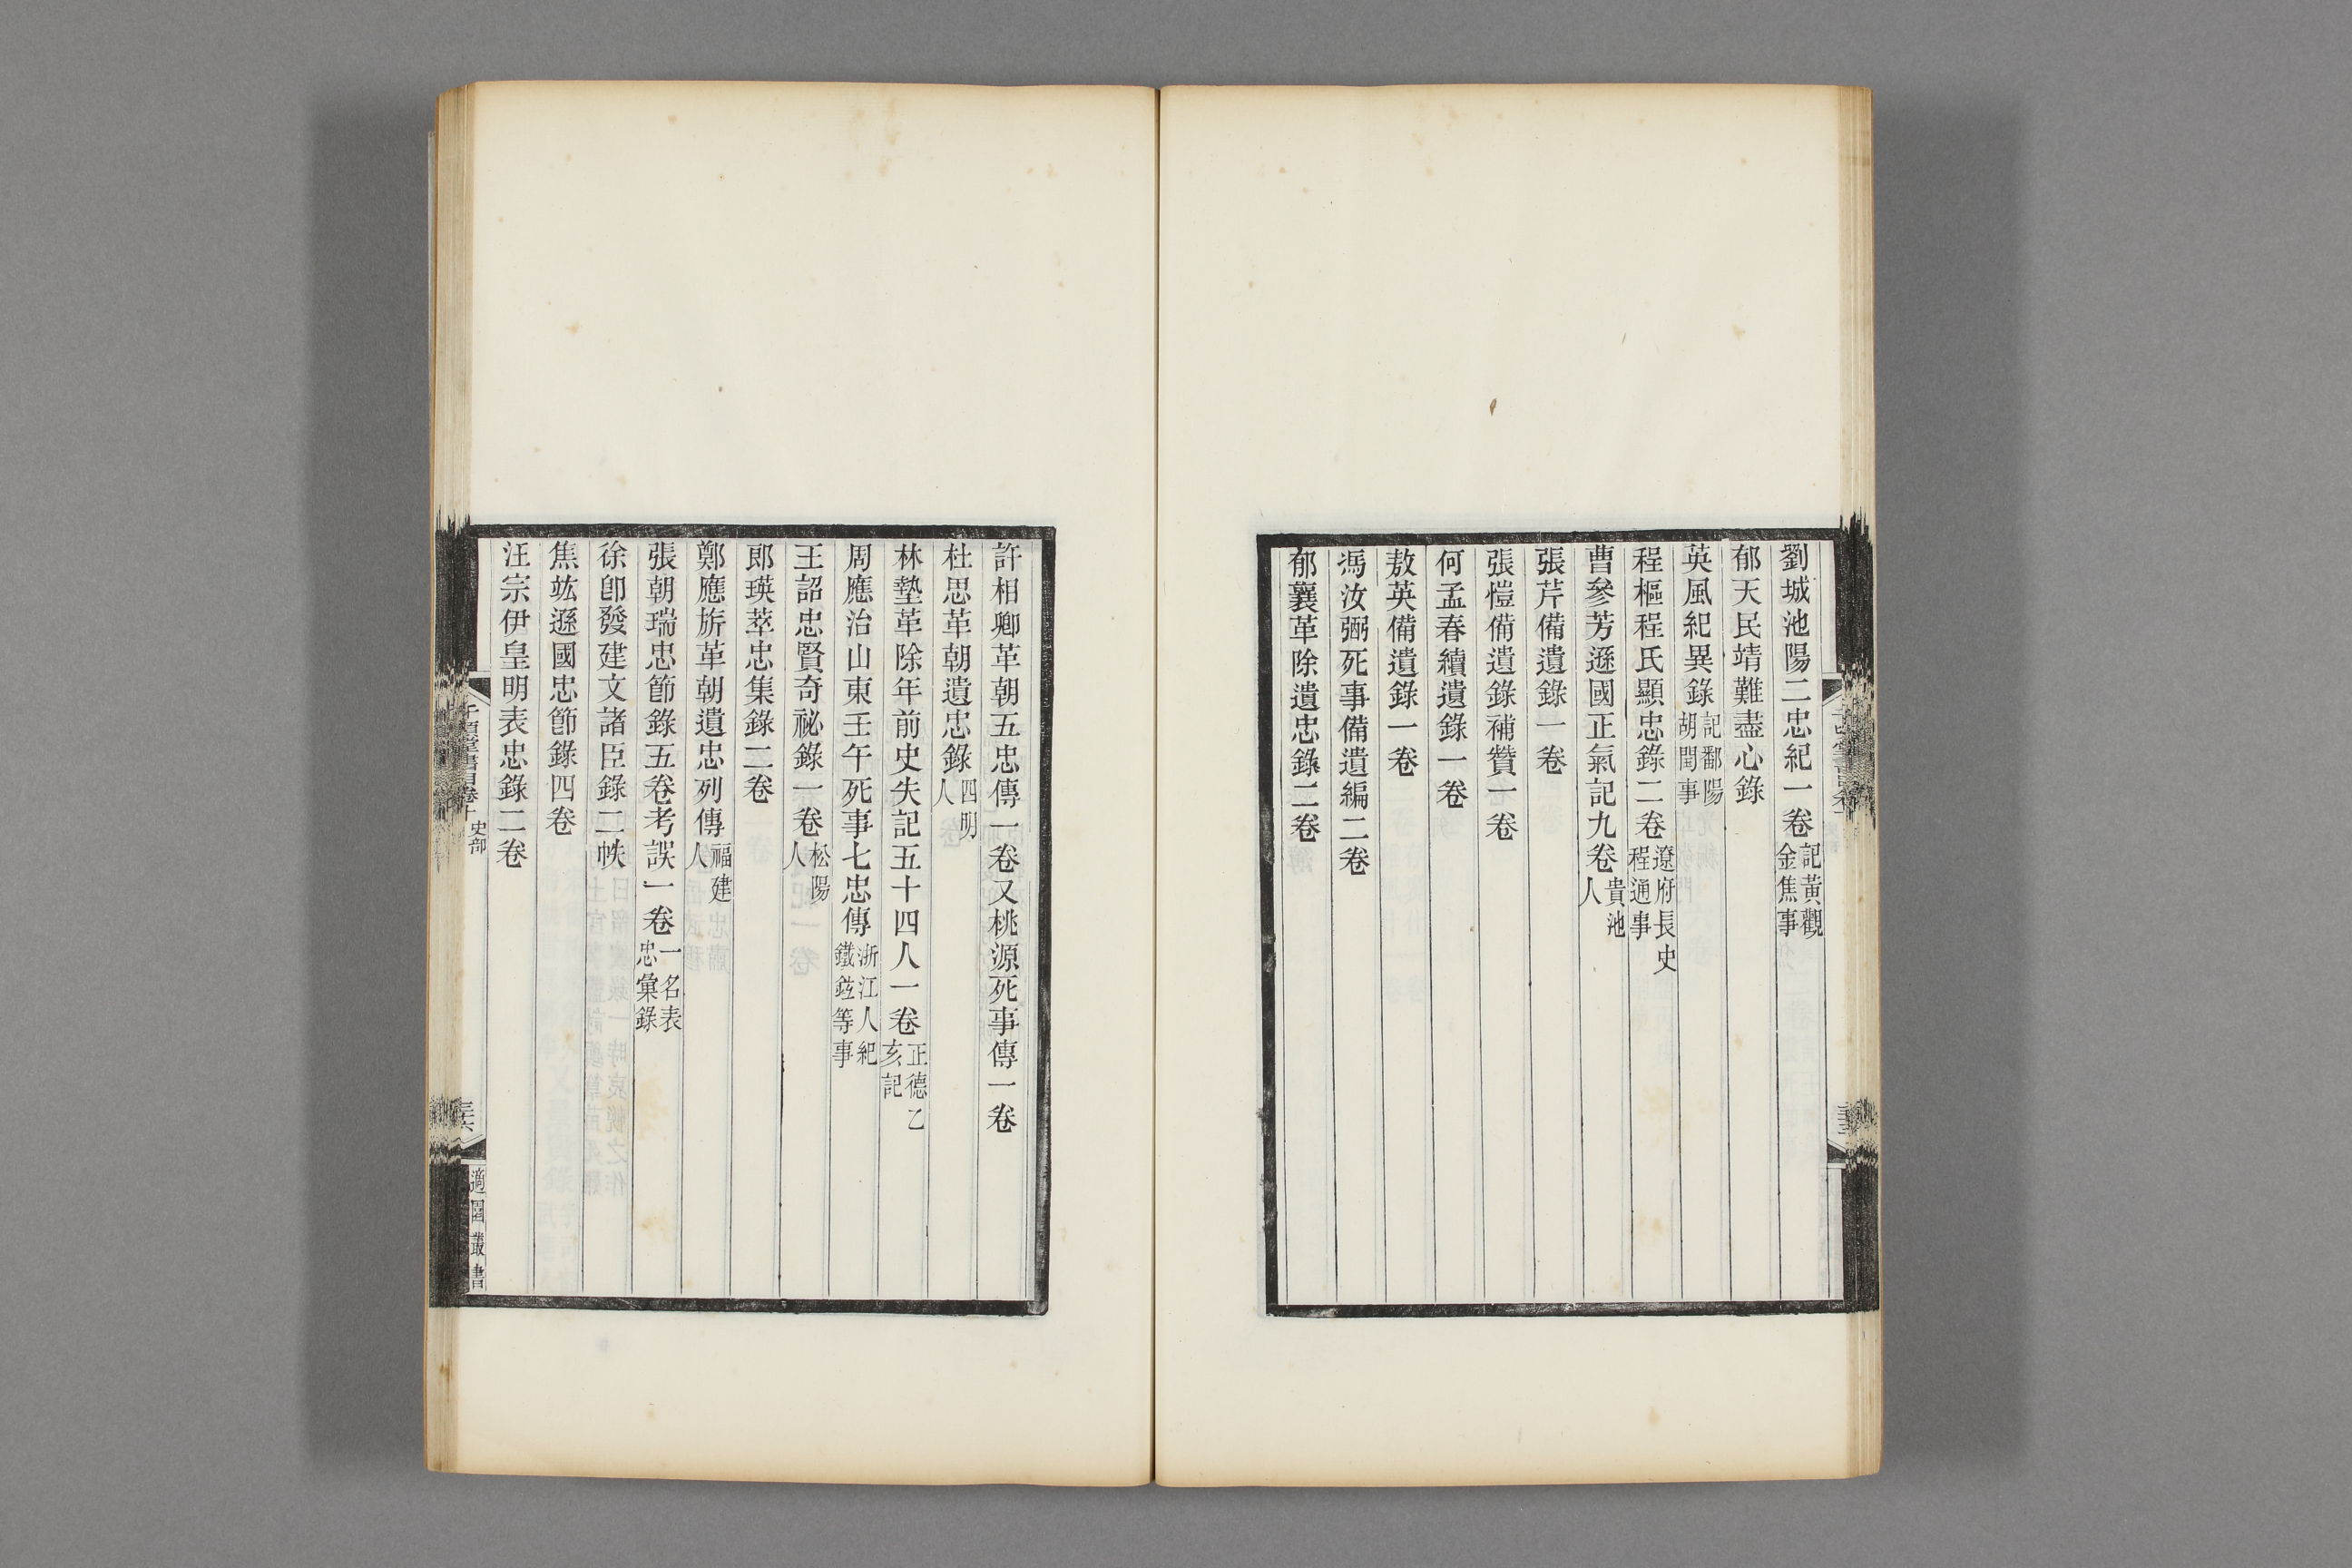 劉城池陽二忠紀一卷記黃觀金焦事
郁天民靖難盡心錄
英風紀異錄記鄱陽胡閏事
程樞程氏顯忠錄二卷遼府長史程通事
曹參芳遜國正氣記九卷貴池人
張芹備遺錄一卷
張愷備遺錄補贊一卷
何孟春續遺錄一卷
敖英備遺錄一卷
馮汝弼死事備遺編二卷
郁襄革除遺忠錄二卷
許相卿革朝五忠傳一卷又桃源死事傳一卷
杜思革朝遺忠錄四明人
林塾革除年前史失記五十四人一卷正德乙亥記
周應治山東壬午死事七忠傳浙江人紀鐵鉉等事
王詔忠賢奇祕錄一卷松陽人
郎瑛萃忠集錄二卷
鄭應旂革朝遺忠列傳福建人
張朝瑞忠節錄五卷考誤一卷一名表忠彙錄
徐卽發建文諸臣錄二帙
焦竑遜國忠節錄四卷
汪宗伊皇明表忠錄二卷
千頃堂書目卷十 史部
三六
適園叢書